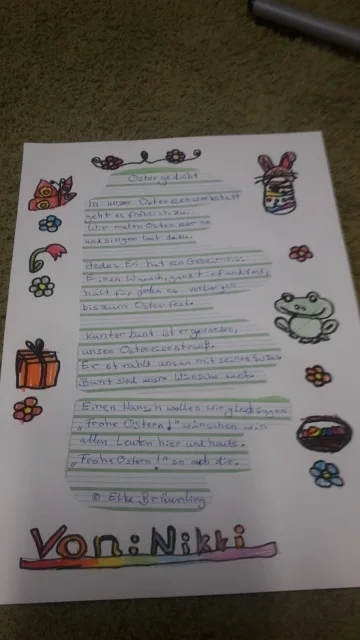 Ostergedicht
In unser Ostereierwerkstatt
geht es fröhlich zu.
Wir malen Ostereier an
und singen laut dazu.
Jedes Ei hat ein Geheimnis.
Einen Wunsch, ganz tief und fest,
hält für jeden es verborgen
bis zum Osterfest.
Kunterbunt ist er geworden,
unser Ostereierstrauß.
Er strahlt uns an mit seinen
Bunt sind unsre Wünsche auch.
Einen Wunsch wollen wir gleich sagen
"Frohe Ostern!" wünschen wir
allen Leuten hier und heute.
"Frohe Ostern!" so auch dir.
© Elke Bräunling
Von: Nikki